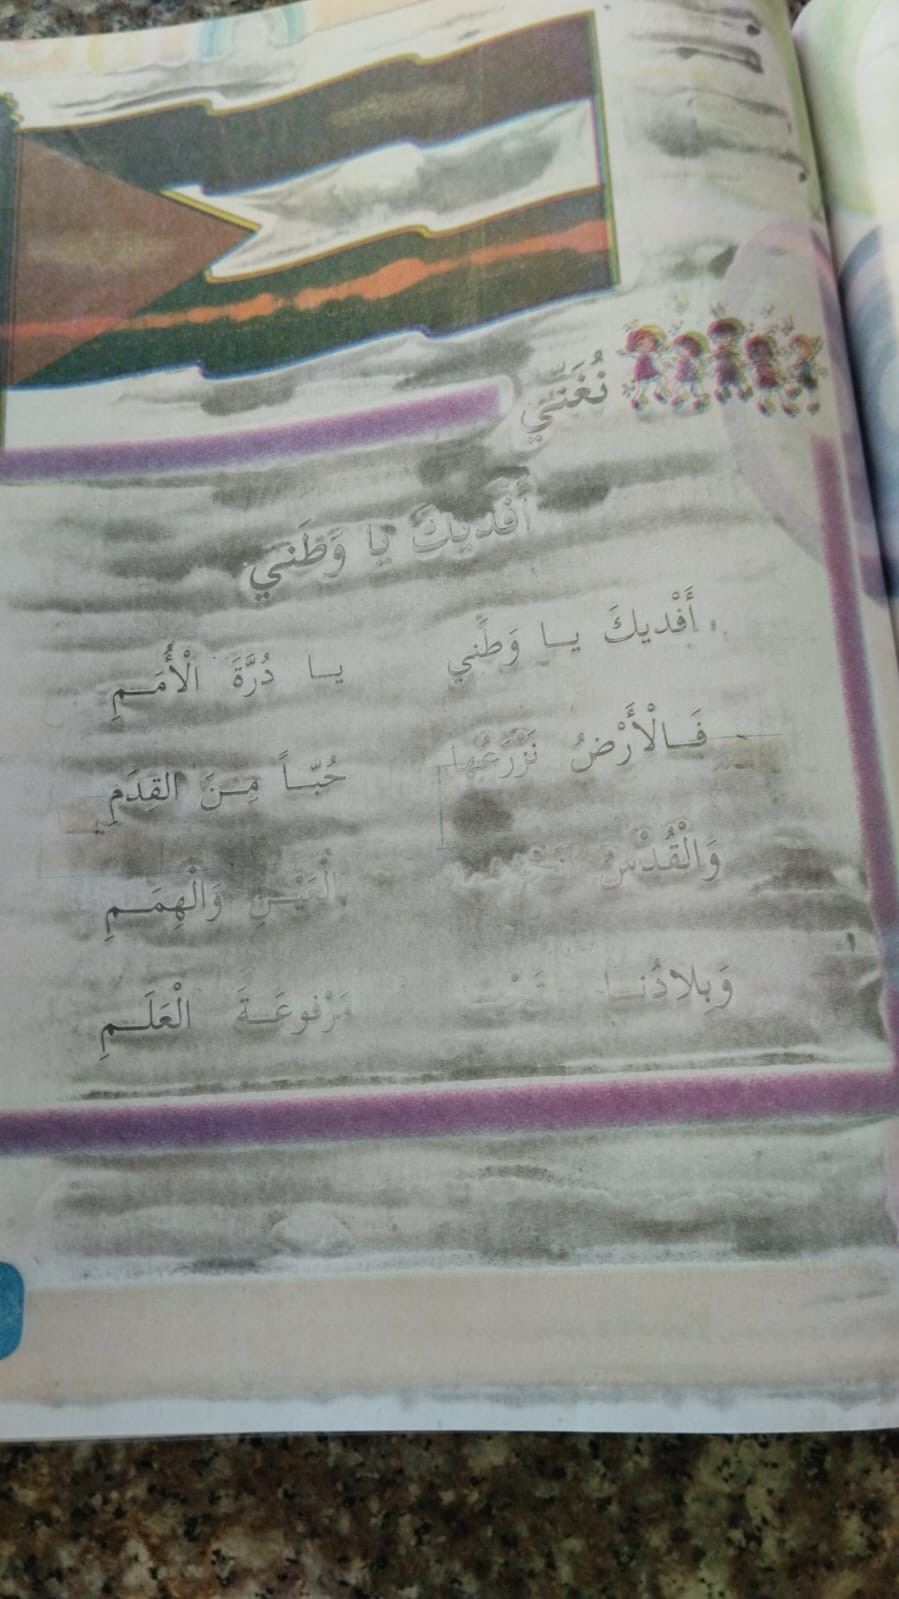 نُغَنّي
أَفْديكَ يا وَطَني
أَفْديكَ يــا وَطَني يــا دُرَّةَ الْأُمَــمِ
فَــالْأَرْضُ نَزْرَعُها حُبّــاً مِــنَ القِدَمِ
وَالْقُدْسُ وَالْهِمَــمِ
وَبِلادُنــا مَرْفوعَــةَ الْعَلَــمِ